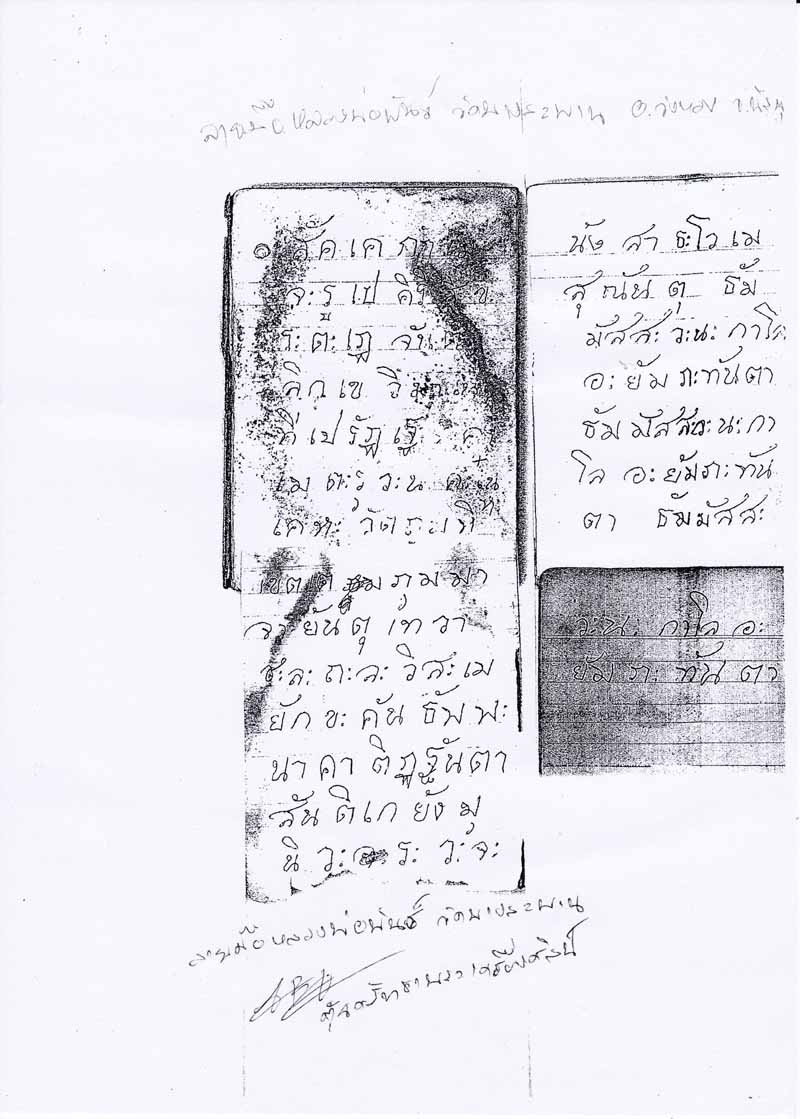 ลายมือหลวงพ่อพันธ์ วัดบางสะพาน อ.วังทอง
๐ สัคเค กา
จะรูเป คิริ ข
ระตะเฏ จันต
ลิกเข วิมาเน
ทีเปรัฏเฐ คา
เม ตะรุวะนะคะ
เคหะวัตถุมหิ
เขตเต ภุมมา
จะ ยันตุ เทวา
ชะละ ถะละ วิสะเม
ยักขะ คันธัพพะ
นาคา ติฏฐันตา
สันติเก ยังมุ
นิ วะ ระ วะจะ
นัง สาธะโวเม
สุณันตุ ธัม
มัสสะวะนะกาโล
อะยัมภะทันตา
ธัมมัสสะวะนะกา
โล อะยัมภะทัน
ตา ธัมมัสสะ
วะนะ กาโล อะ
ยัมภะ ทันตา
ลายมือหลวงพ่อพันธ์ วัดบางสะพาน